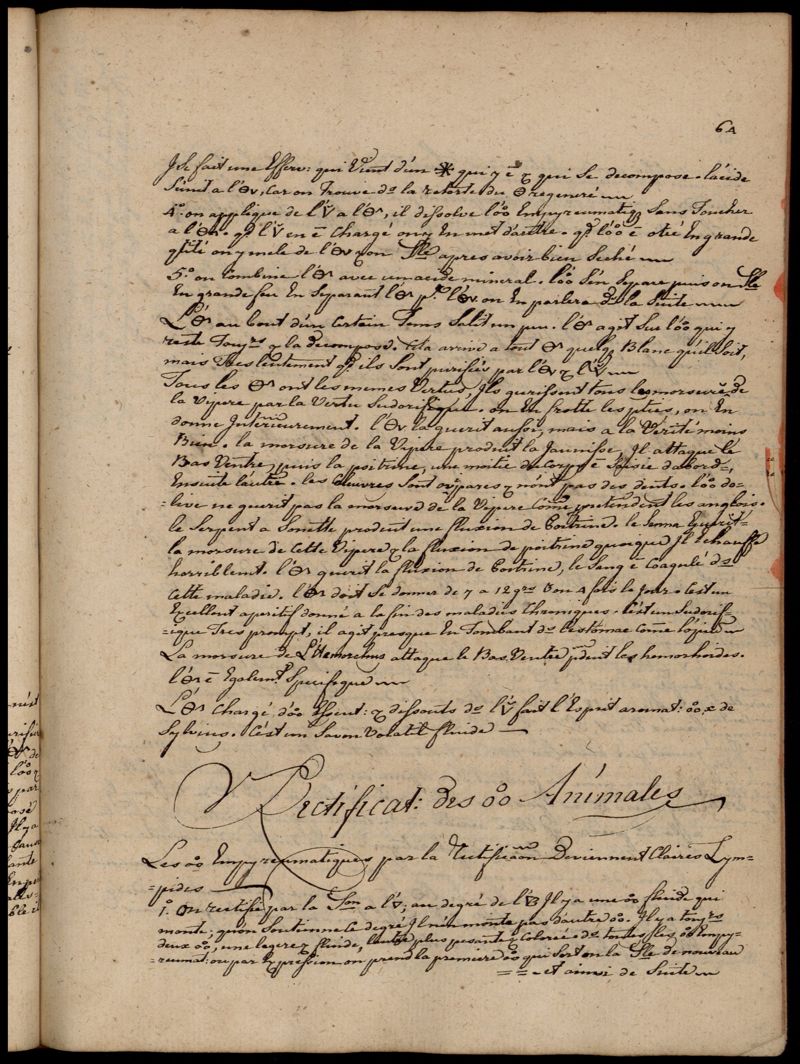 64
Il se fait une Efferv: qui Vient d'un ✳ qui y ē & qui se decompose. l'acide
S'unit a l'🜔v, Car on Trouve ds la retorte du 🜔 regeneré
4.° on applique de l'V̇ a l'🜔s, il dissolve l'°o° Empyreumatiq sans Toucher
a l'🜔s. qd l'V̇ en ē Chargé on y En met d'autre. qd l'°o° ē otié En grande
qtité on y mele de l'🜔v & on dlle apres avoir bien Seché
5.° on Combine l'🜔s avec un acide mineral. l'°o° s'en Separe puis on dlle
En grand feu En Separant l'🜔s pr l'🜔v on En parlera de la Suite
L'🜔s au bout d'un Certain Tems Salit un peu. l'🜔s agit Sur l'°o° qui y
reste Toujrs & la decompose. Cela arrive a tout 🜔s quelq Blanc qu'il soit,
mais tres lentement qd ils sont purifiés par l'🜔v & l'V̇
Tous les 🜔s ont les memes Vertus, Ils guerissent tous les morsures de
la Vipere par la Vertu Sudorifique. on en frotte les pties, on En
donne Interieurement. l'🜔v la guerit aussi, mais a la Verité moins
Bien. la morsure de la Vipere produit la Jaunisse, Il attaque le
Bas Ventre, puis la poitrine, une moitié du Corps ē Saisie d'abord,
Ensuite l'autre. les Couleuvres Sont ovipares & n'ont pas des dents. l'°o° do-
-live ne guerit pas la morsure de la Vipere Come pretendent les anglois.
le Serpent a Sonette produit une fluxion de Poitrine. le Seneka guerit
la morsure de Cette Vipere & la fluxion de poitrine quoique Il Echauffe
horriblemt. l'🜔s guerit la fluxion de Poitrine, le Sang ē Coagulé ds
Cette maladie. l'🜔s doit Se donner de 7 a 12 grs 3 ou 4 fois le Jour. C'est un
Excellent aperitif donné a la fin des maladies Chroniques. C'est un Sudorif-
-ique Tres prompt, il agit presque En Tombant ds l'estomac Come l'opium
La morsure de L'Hemorrhus attaque le Bas Ventre & pduit les hemorhoides.
l'🜔s ē Egalemt Specifique
L'🜔s Chargé d'°o° Essent: & dissouts ds l'V̇ fait l'Esprit aromat: °o°x de
Sylvius. C'est un Savon Volatil fluide
Rectificat: des °o° Animales
Les °o° Empyreumatiques par la Rectification Deviennent Claires Lym-
-pides
1.° On rectifie par la Don a l'V; au degré de l'B Il y a une °o° fluide qui
monte; qu'on Soutienne Ce degré Il n'en monte pas d'autre °o°. Il y a toujrs
deux °o°, une legere & fluide, l'autre plus pesante & Colorée. ds toutes les °o° Empy-
-reumat: ou par Expression on prend la premiere °o° qui sort on la dlle de nouveau
et ainsi de Suite